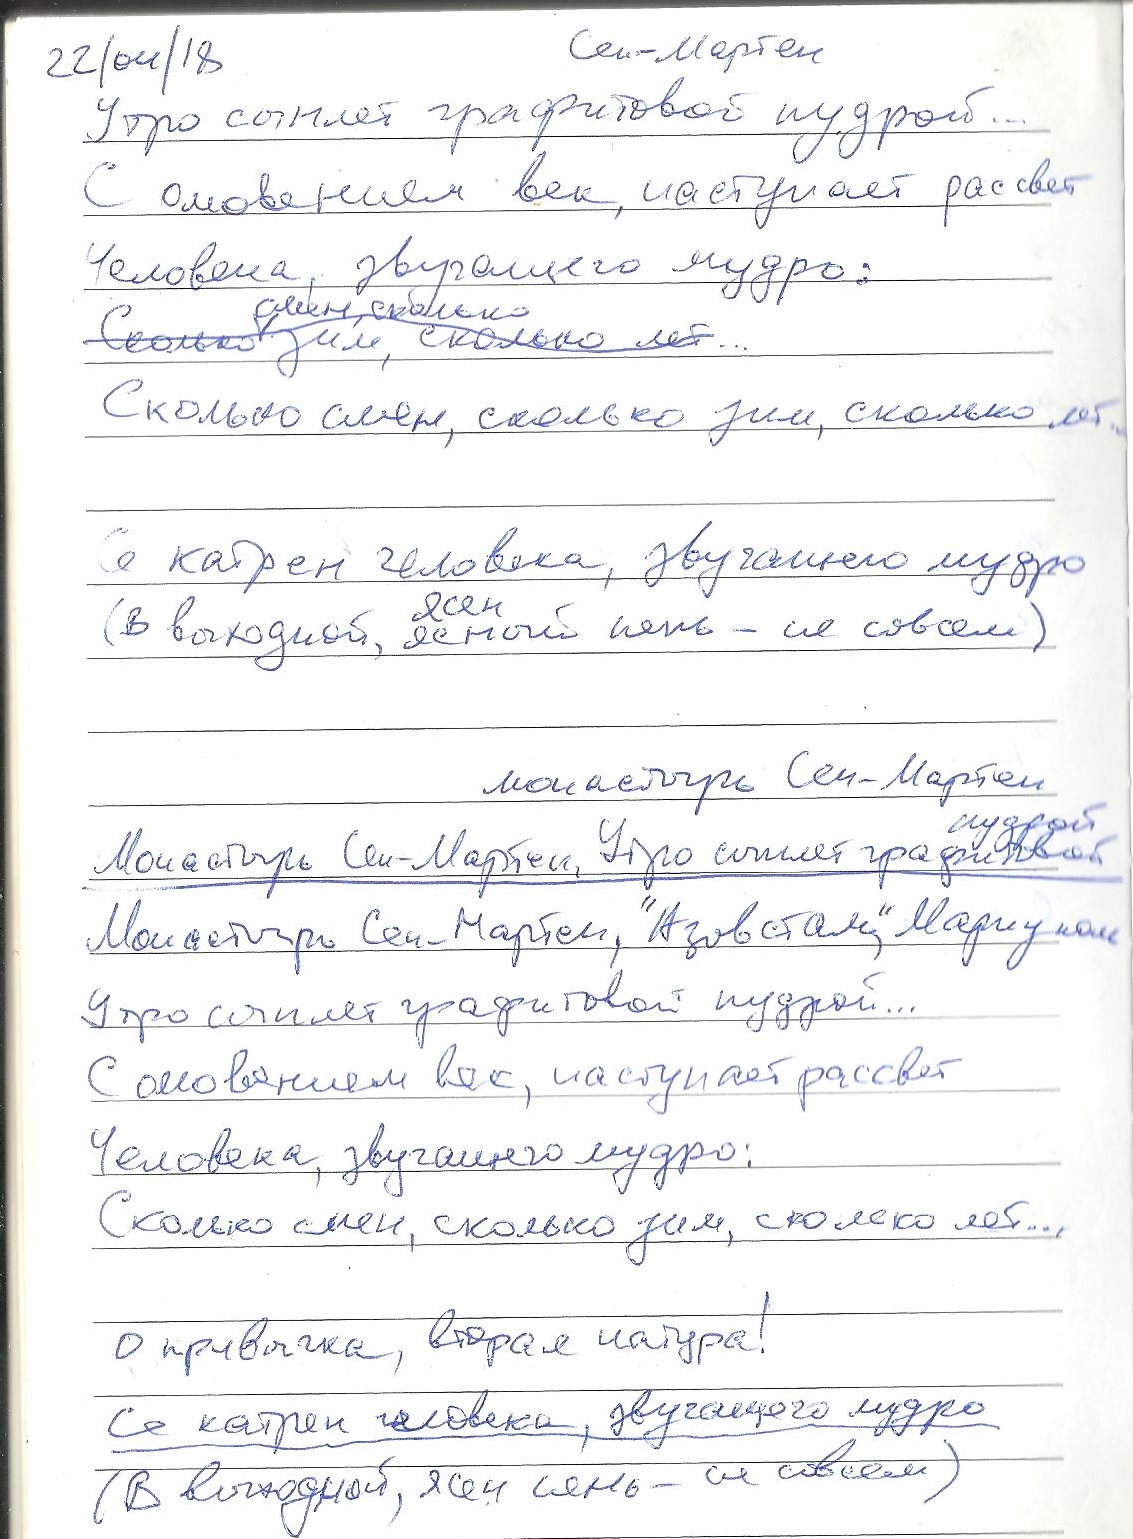 22/04/18 Сен-Мартен
Утро сыплет графитовой пудрой...
С омовением век, наступает рассвет
Человека, звучащего мудро:
смен, сколько
Сколько зим, сколько лет...
Сколько смен, сколько зим, сколько лет...
Се катрен человека, звучащего мудро
ясен
(В выходной, ясный пень – не совсем)
монастырь Сен-Мартен
пудрой
Монастырь Сен-Мартен, Утро сыплет графитовой
Монастырь Сен-Мартен, "Азовсталь", Мариуполь
Утро сыплет графитовой пудрой...
С омовением век, наступает рассвет
Человека, звучащего мудро:
Сколько смен, сколько зим, сколько лет...
О привычка, вторая натура!
Се катрен человека, звучащего мудро
(В выходной, ясен пень – не совсем)